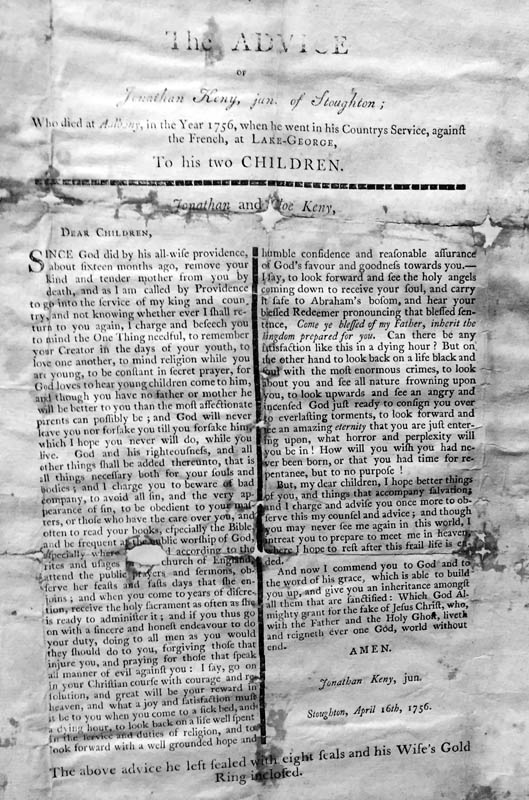 The ADVICE
OF
Jonathan Keny, jun. of Stoughton;
Who died at Albany, in the Year 1756, when he went in his Countrys Service, againſt
the French, at LAKE-GEORGE,
To his two CHILDREN.
Jonathan and Joe Keny,
DEAR CHILDREN,
SINCE God did by his all-wiſe providence,
about ſixteen months ago, remove your
kind and tender mother from you by
death, and as I am called by Providence
to go into the ſervice of my king and coun
try, and not knowing whether ever I ſhall re-
turn to you again, I charge and beſeech you
to mind the One Thing needful, to remember
your Creator in the days of your youth, to
love one another, to mind religion while you
are young, to be conſtant in ſecret prayer, for
God loves to hear young children come to him,
and though you have no father or mother he
will be better to you than the moſt affectionate
parents can poſſibly be; and God will never
leave you nor forſake you till you forſake him,
which I hope you never will do, while you
live. God and his righteouſneſs, and all
other things ſhall be added thereunto, that is
all things neceſſary both for your ſouls and
bodies; and I charge you to beware of bad
company, to avoid all ſin, and the very ap-
pearance of ſin, to be obedient to your maſ-
ters, or thoſe who have the care over you, and
often to read your books, eſpecially the Bible,
and be frequent at the public worſhip of God,
eſpecially where according to the
rites and uſages church of England,
attend the public prayers and ſermons, ob-
ſerve her feaſts and faſts days that ſhe en-
joins; and when you come to years of diſcre-
tion, receive the holy ſacrament as often as ſhe
is ready to adminiſter it; and if you thus go
on with a ſincere and honeſt endeavour to do
your duty, doing to all men as you would
they ſhould do to you, forgiving thoſe that
injure you, and praying for thoſe that ſpeak
all manner of evil againſt you: I ſay, go on
in your Chriſtian courſe with courage and re-
ſolution, and great will be your reward in
heaven, and what a joy and ſatisfaction muſt
it be to you when you come to a ſick bed, and
a dying hour, to look back on a life well ſpent
in the ſervice and duties of religion, and to
look forward with a well grounded hope and
humble confidence and reaſonable aſſurance
of God's favour and goodneſs towards you.—
I ſay, to look forward and ſee the holy angels
coming down to receive your ſoul, and carry
it ſafe to Abraham's boſom, and hear your
bleſſed Redeemer pronouncing that bleſſed ſen-
tence, Come ye bleſſed of my Father, inherit the
kingdom prepared for you. Can there be any
ſatisfaction like this in a dying hour? But on
the other hand to look back on a life black and
foul with the moſt enormous crimes, to look
about you and ſee all nature frowning upon
you, to look upwards and ſee an angry and
incenſed God juſt ready to conſign you over
to everlaſting torments, to look forward and
ſee an amazing eternity that you are juſt enter-
ing upon, what horror and perplexity will
you be in! How will you wiſh you had ne-
ver been born, or that you had time for re-
pentance, but to no purpoſe!
But, my dear children, I hope better things
of you, and things that accompany ſalvation;
and I charge and adviſe you once more to ob-
ſerve this my counſel and advice; and though
you may never ſee me again in this world, I
intreat you to prepare to meet me in heaven,
where I hope to reſt after this frail life is en-
ded.
And now I commend you to God and to
the word of his grace, which is able to build
you up, and give you an inheritance amongſt
all them that are ſanctified: Which God Al-
mighty grant for the ſake of Jeſus Chriſt, who,
with the Father and the Holy Ghoſt, liveth
and reigneth ever one God, world without
end.
AMEN.
Jonathan Keny, jun.
Stoughton, April 16th, 1756.
The above advice he left ſealed with eight ſeals and his Wife's Gold
Ring incloſed.